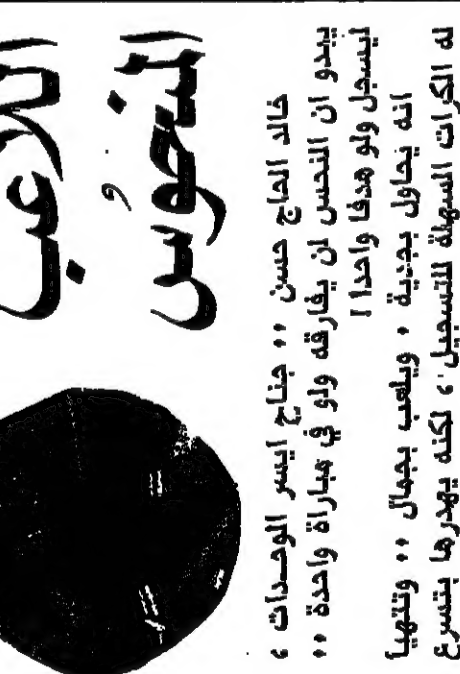 اللاعب
المنحوس
خالد الحاج حسن ،، جناح ايسر الوحدات ،
يبدو ان النحس لن يفارقه ولو في مباراة واحدة ،،
ليسجل ولو هدفا واحدا !
انه يحاول بجدية ، ويلعب بجمال ،، وتتهيأ
له الكرات السهلة للتسجيل ، لكنه يهدرها بتسرع